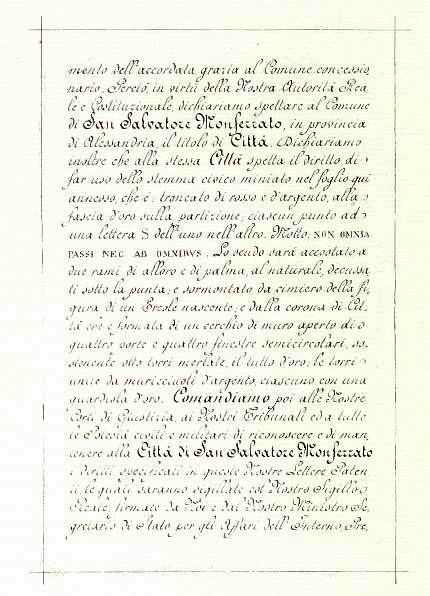 mento dell'accordata grazia al Comune concessio,
nario, Perciò, in virtù della Nostra Autorità Rea,
le e Costituzionale, dichiariamo spettare al Comune
di San Salvatore Monferrato, in provincia
di Alessandria, il titolo di Città. Dichiariamo
inoltre che alla stessa Città spetta il diritto di
far uso dello stemma civico miniato nel foglio qui
annesso, che è: troncato di rosso e d'argento, alla
fascia d'oro sulla partizione; ciascun punto ad
una lettera S dell'uno nell'altro. Motto: NON OMNIA
PASSI NEC AB OMNIBVS. Lo scudo sarà accostato a
due rami di alloro e di palma, al naturale, decussa,
ti sotto la punta; e sormontato da cimiero della fi,
gura di un Ercole nascente; e dalla corona di Cit,
tà che è formata di un cerchio di muro aperto di
quattro porte e quattro finestre semicircolari, so,
stenente otto torri merlate, il tutto d'oro; le torri
unite da muricciuoli d'argento, ciascuno con una
guardiola d'oro. Comandiamo poi alle Nostre
Corti di Giustizia, ai Nostri Tribunali ed a tutte
le Potestà civili e militari di riconoscere e di man,
tenere alla Città di San Salvatore Monferrato
i diritti specificati in queste Nostre Lettere Paten
ti, le quali saranno sigillate col Nostro Sigillo
Reale, firmate da Noi e dal Nostro Ministro Se,
gretario di Stato per gli Affari dell'Interno, Pre,